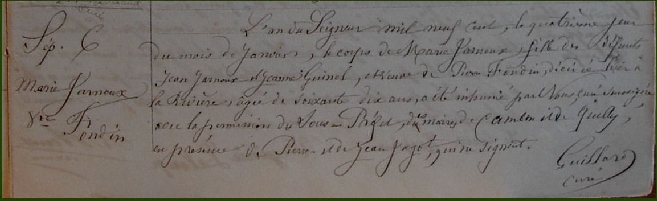 Sép. 6
Marie Jarnoux
Vve Fondin
L'an du Seigneur mil neuf cent, le quatrième jour
du mois de Janvier, le corps de Marie Jarnoux fille des défunts
Jean Jarnoux et Jeanne Guinel, et veuve de Pierre Fondin, décédée hier à
la Rivière, âgée de soixante dix ans, a été inhumé par Nous, curé soussigné
avec la permission du Sous-Préfet, des maires de Camlen et de Quilly,
en présence de Pierre et de Jean Jagot, qui ne signent.
Guillard
curé